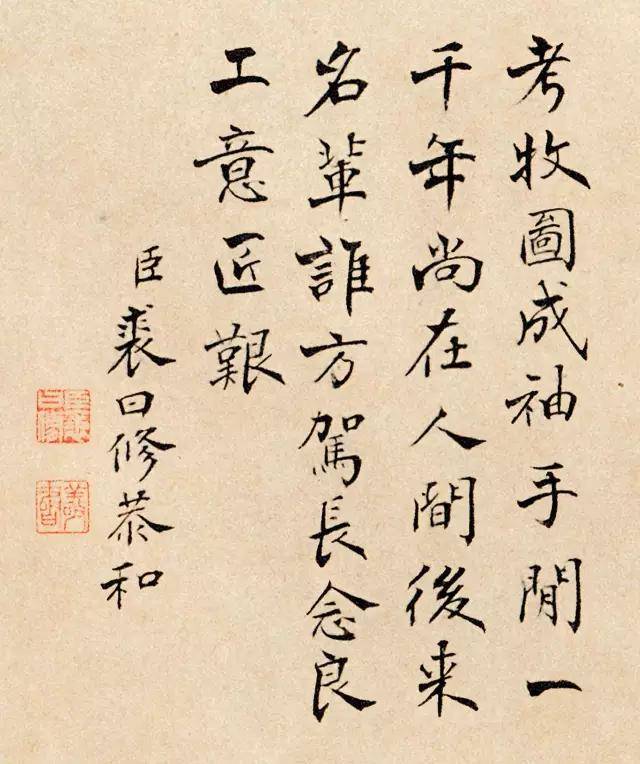 考牧圖成袖手閒一
千年尚在人間後来
名輩誰方駕長念良
工意匠艱
臣裘曰修恭和